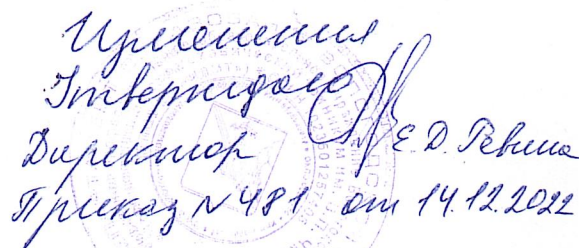 Изменения
Утверждаю
Директор Е. Д. Ревина
Приказ № 481 от 14.12.2022